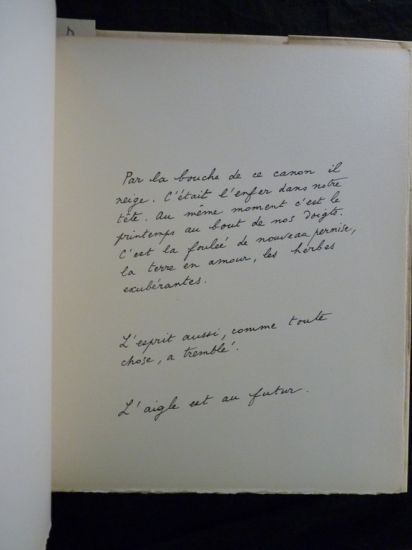 Par la bouche de ce canon il
neige. C'était l'enfer dans notre
tête. Au même moment c'est le
printemps au bout de nos doigts.
C'est la foulée de nouveau permise,
la terre en amour, les herbes
exubérantes.
L'esprit aussi, comme toute
chose, a tremblé.
L'aigle est au futur.